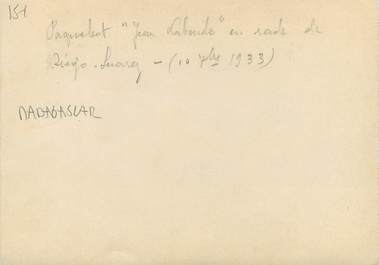 151
Paquebot "Jean Laborde" en rade de
Diégo-Suarez - (10 7bre 1933)
MADAGASCAR